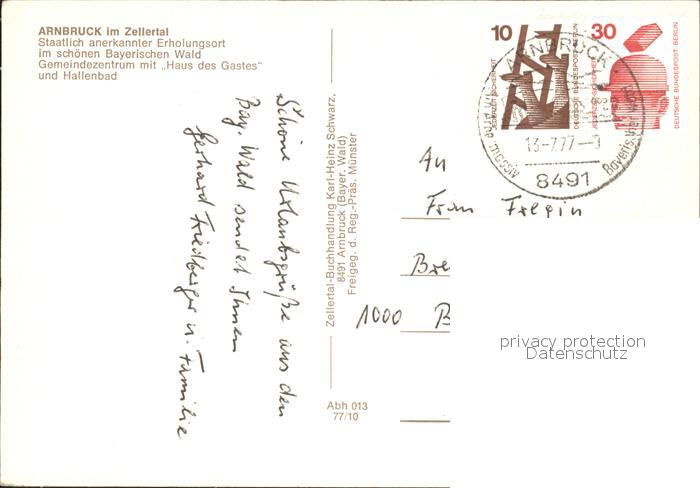 ARNBRUCK im Zellertal
Staatlich anerkannter Erholungsort
im schönen Bayerischen Wald
Gemeindezentrum mit „Haus des Gastes"
und Hallenbad
Schöne Urlaubsgrüße aus dem
Bay. Wald sendet Ihnen
Gerhard Friedberger u. Familie
Zellertal-Buchhandlung Karl-Heinz Schwarz,
8491 Arnbruck (Bayer. Wald)
Freigeg. d. Reg.-Präs. Münster
Abh 013
77/10
10
JEDERZEIT SICHERHEIT
DEUTSCHE BUNDESPOST BERLIN
30
JEDERZEIT SICHERHEIT
DEUTSCHE BUNDESPOST BERLIN
ARNBRUCK
13-7.77
8491
Bayerischer Wald
An
Frau
Bre
1000 B
privacy protection
Datenschutz